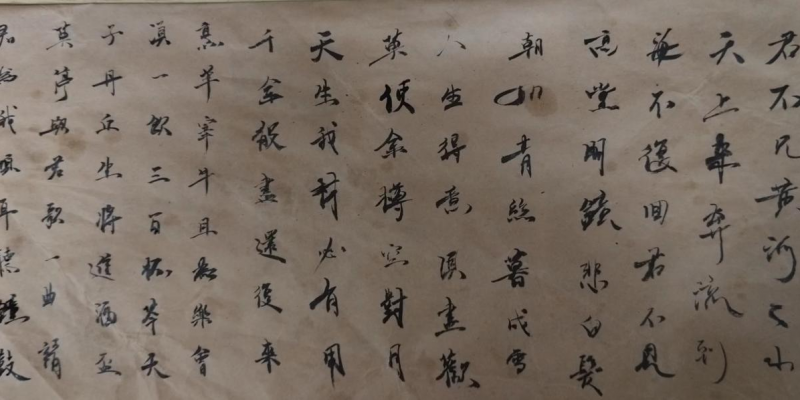 君不見黃河之水
天上來奔流到
海不復回君不見
高堂明鏡悲白髮
朝如青絲暮成雪
人生得意須盡歡
莫使金樽空對月
天生我材必有用
千金散盡還復來
烹羊宰牛且為樂會
須一飲三百杯岑夫
子丹丘生將進酒盃
莫停與君歌一曲請
君為我傾耳聽鐘鼓